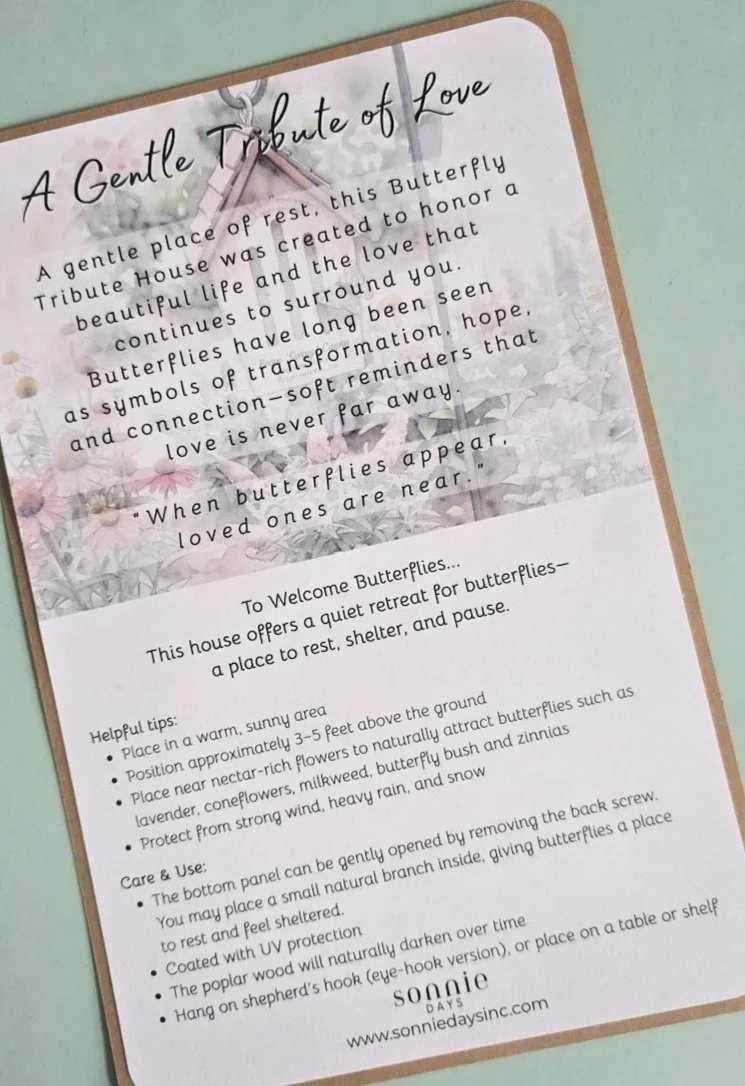 A Gentle Tribute of Love
A gentle place of rest, this Butterfly
Tribute House was created to honor a
beautiful life and the love that
continues to surround you.
Butterflies have long been seen
as symbols of transformation, hope,
and connection—soft reminders that
love is never far away.
"When butterflies appear,
loved ones are near."
To Welcome Butterflies...
This house offers a quiet retreat for butterflies—
a place to rest, shelter, and pause.
Helpful tips:
• Place in a warm, sunny area
• Position approximately 3–5 feet above the ground
• Place near nectar-rich flowers to naturally attract butterflies such as
lavender, coneflowers, milkweed, butterfly bush and zinnias
• Protect from strong wind, heavy rain, and snow
Care & Use:
• The bottom panel can be gently opened by removing the back screw.
You may place a small natural branch inside, giving butterflies a place
to rest and feel sheltered.
• Coated with UV protection
• The poplar wood will naturally darken over time
• Hang on shepherd's hook (eye-hook version), or place on a table or shelf
sonnie
DAYS
www.sonniedaysinc.com